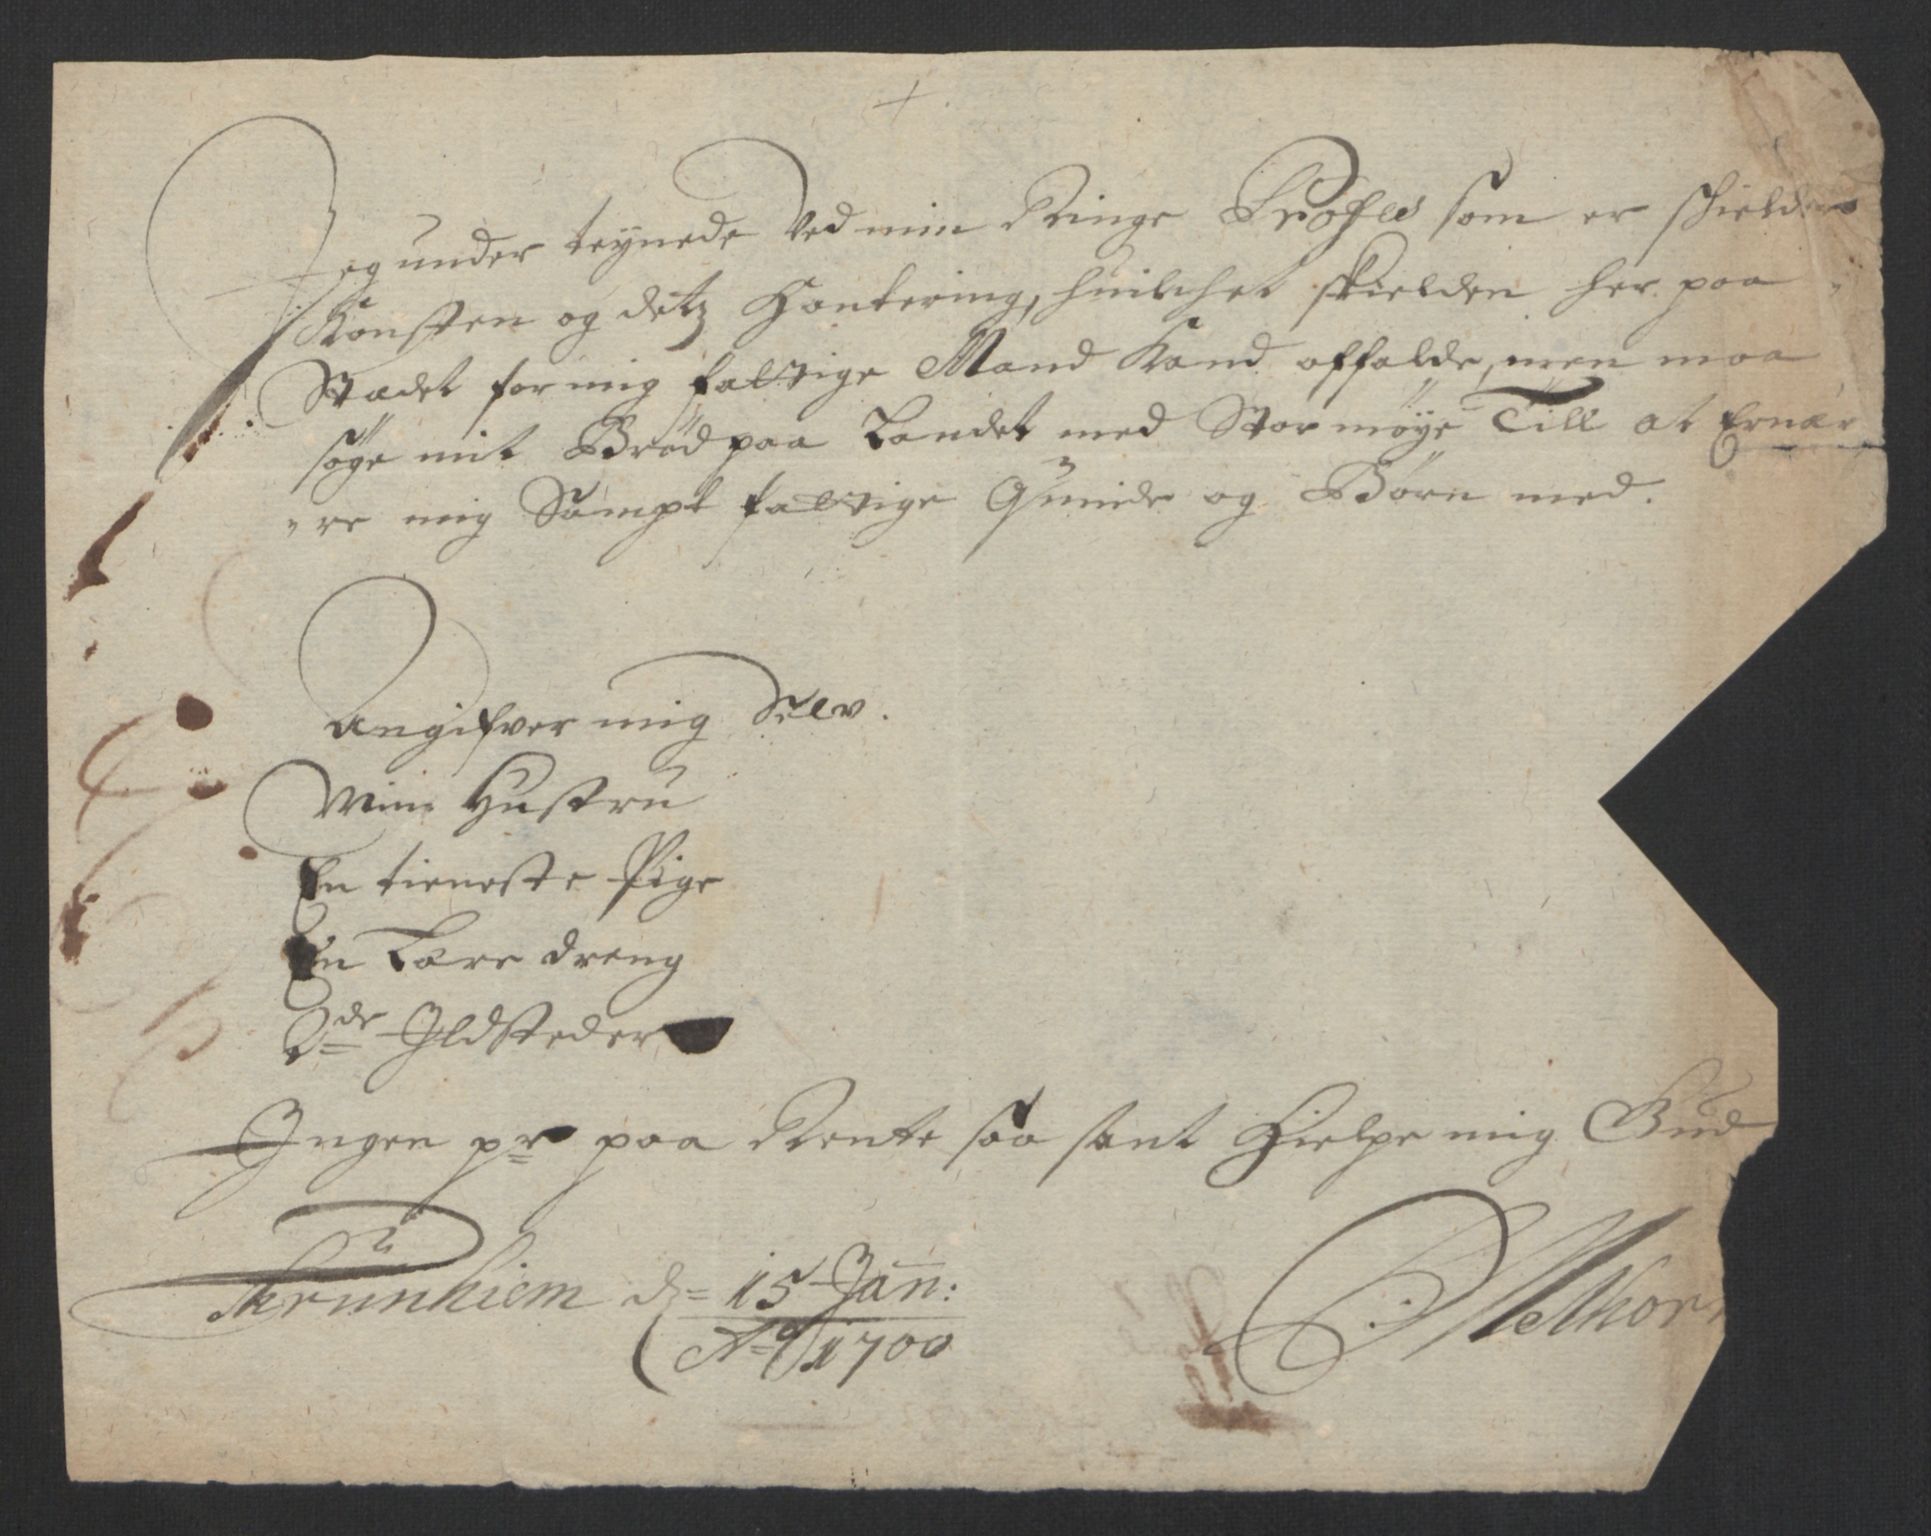 Jeg under teynede Ved min Ringe Profes som er schilder
Konsten og detz Handtering, huilchet skielden her paa
Stædet for mig fattige Mand Kand affalde, men maa
søge mit Brød paa Landet med Stor møye Till at Ernær
"re mig Sampt fattige Quinde og Børn med.
Angifver mig Selv.
Min Hustru
En tieneste Pige
En Lære dreng
2de Ildsteder
Ingen pr paa Rente saa sant Hielpe mig Gud
Thrünhiem d= 15 Jan:
Ao 1700